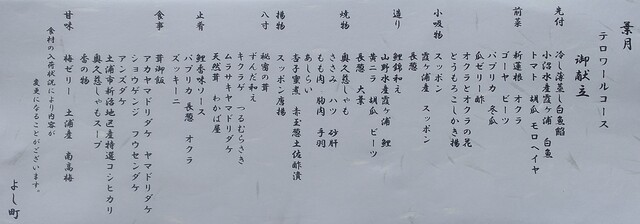 葉月
テロワールコース
御献立
先付
冷し薄葱と白魚餡
小沼水産霞ヶ浦 白魚
トマト 胡瓜 モロヘイヤ
前菜
新蓮根 オクラ
ゴーヤ ビーツ
パプリカ 冬瓜
瓜ゼリー酢
オクラとオクラの花
とうもろこしかき揚
小吸物
スッポン
霞ヶ浦産 スッポン
長葱
造り
鯉錦和え
山野水産霞ヶ浦 鯉
黄ニラ 胡瓜 ビーツ
長葱 大葉
焼物
奥久慈しゃも
ささみ ハツ 砂肝
もも肉 胸肉 手羽
あしらい
舌古蜜煮 赤玉葱土佐酢漬
揚物
スッポン唐揚
八寸
秘密の茸
ずんだ和え
キクラゲ つるむらさき
ムラサキヤマドリダケ
天然茸 わかば屋
止肴
鯉香味ソース
パプリカ 長葱 オクラ
ズッキーニ
食事
茸御飯
アカヤマドリダケ ヤマドリダケ
ショウゲンジ フウセンダケ
アンズダケ
土浦市新治地区産特選コシヒカリ
奥久慈しゃもスープ
香の物
甘味
梅ゼリー 土浦産 南高梅
食材の入荷状況により内容が
変更になることがございます。
よし町